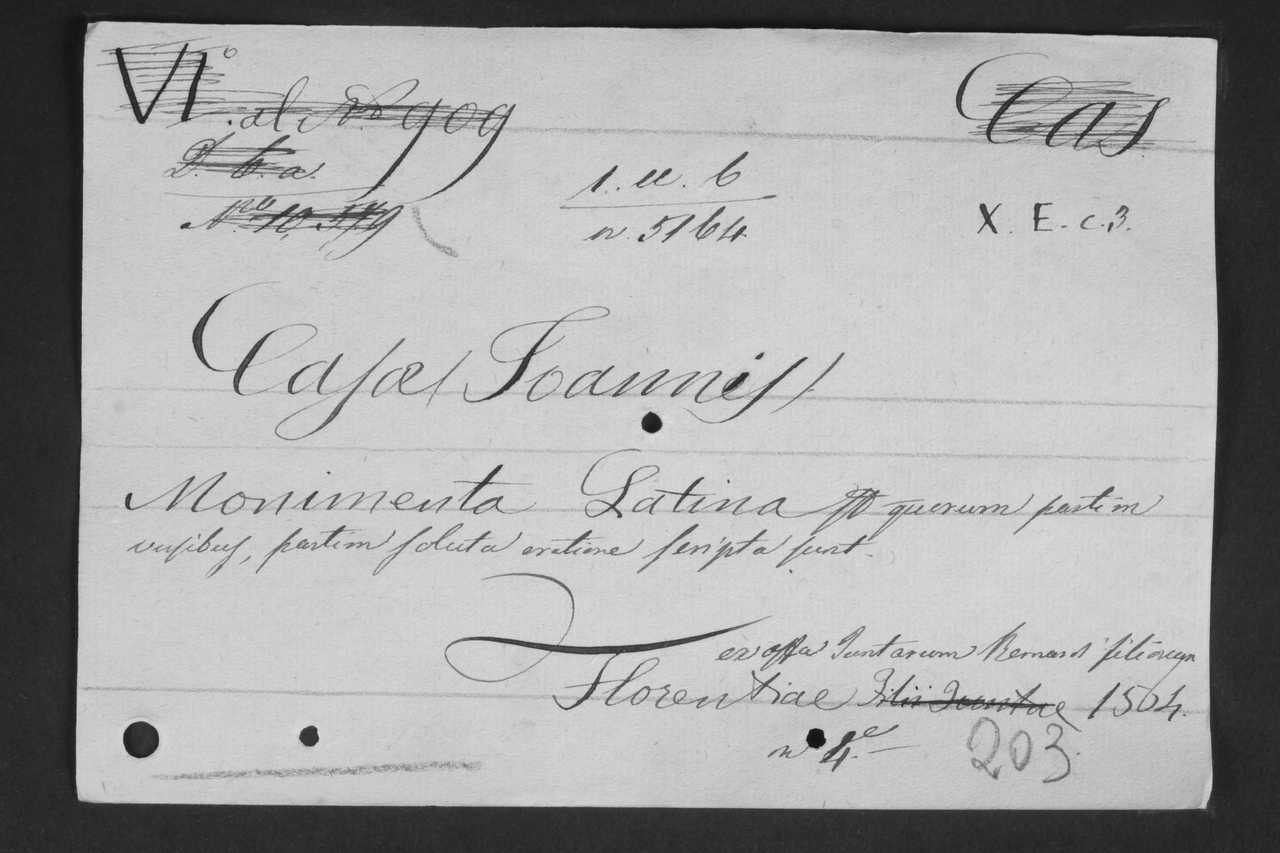 VI.º al Nº 909
Cas
D. b. a.
1. u. b
Nro 10,579
n. 5164
X. E. c. 3.
Casæ (Joannis)
Monimenta Latina quorum partim
versibus, partim soluta oratione scripta sunt.
ex offa Juntarum Bernardi filiorum
Florentiae Filii Juntae 1564.
in 4º
203.